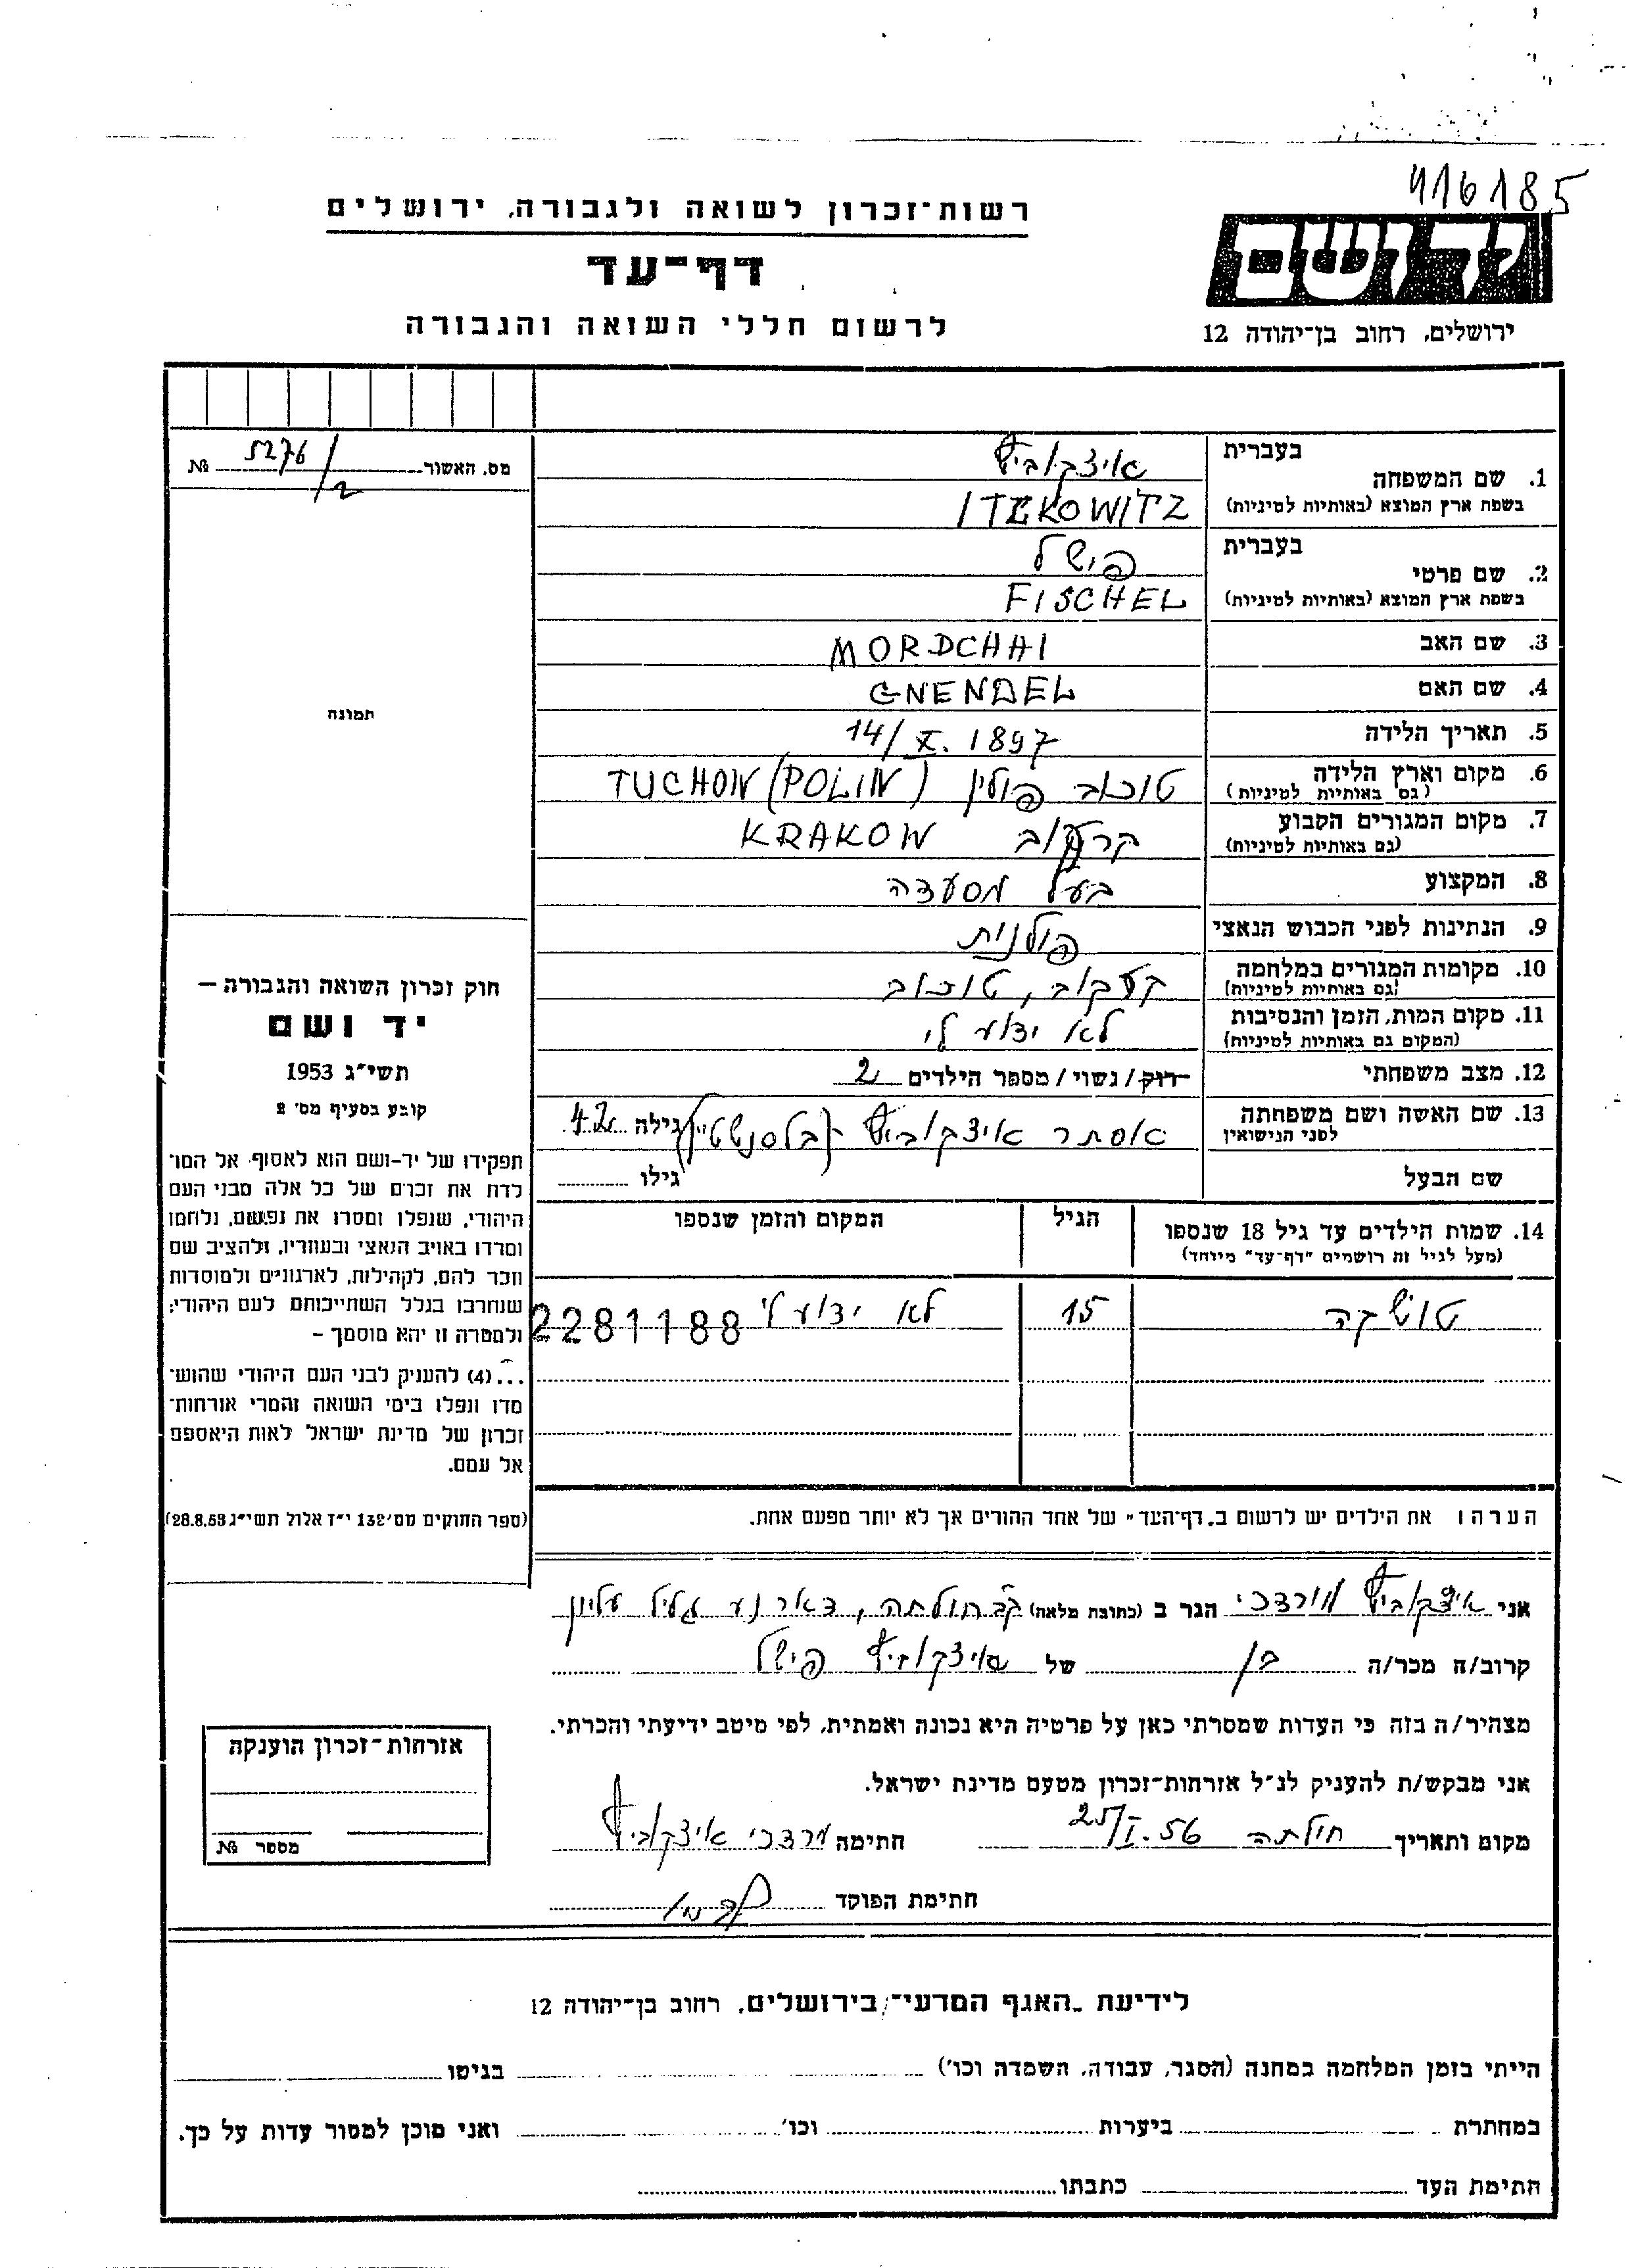 416185
רשות־זכרון לשואה ולגבורה, ירושלים
דף־עד
לרשום חללי השואה והגבורה
יד ושם
ירושלים, רחוב בן־יהודה 12
מס. האשור № 5276/2
1. שם המשפחה בעברית איצקוביץ
בשפת ארץ המוצא (באותיות לטיניות) ITZKOWITZ
2. שם פרטי בעברית פישל
בשפת ארץ המוצא (באותיות לטיניות) FISCHEL
3. שם האב MORDCHAI
4. שם האם GNENDEL
5. תאריך הלידה 14/X. 1897
6. מקום וארץ הלידה (גם באותיות לטיניות) טוכוב פולין TUCHOW (POLIN)
7. מקום המגורים הקבוע (גם באותיות לטיניות) קרקוב KRAKOW
8. המקצוע בעל מסעדה
9. הנתינות לפני הכבוש הנאצי פולנית
10. מקומות המגורים במלחמה (גם באותיות לטיניות) קרקוב, טוכוב
11. מקום המות, הזמן והנסיבות (המקום גם באותיות לטיניות) לא ידוע לי
12. מצב משפחתי רוק/נשוי/מספר הילדים 2
13. שם האשה ושם משפחתה לפני הנישואין אסתר איצקוביץ גילה 42
שם הבעל גילו
14. שמות הילדים עד גיל 18 שנספו הגיל המקום והזמן שנספו
(מעל לגיל זה רושמים "דף־עד" מיוחד)
טושקה 15 לא ידוע לי 2281188
הערה: את הילדים יש לרשום ב„דף־העד" של אחד ההורים אך לא יותר מפעם אחת.
תמונה
חוק זכרון השואה והגבורה —
יד ושם
תשי"ג 1953
קובע בסעיף מס' 2
תפקידו של יד-ושם הוא לאסוף אל המו־
לדת את זכרם של כל אלה מבני העם
היהודי, שנפלו ומסרו את נפשם, נלחמו
ומרדו באויב הנאצי ובעוזריו, ולהציב שם
וזכר להם, לקהילות, לארגונים ולמוסדות
שנחרבו בגלל השתייכותם לעם היהודי;
ולמטרה זו יהא מוסמך –
...(4) להעניק לבני העם היהודי שהוש־
מדו ונפלו בימי השואה והמרי אזרחות־
זכרון של מדינת ישראל לאות היאספם
אל עמם.
(ספר החוקים מס' 132 י"ז אלול תשי"ג 28.8.53)
אני איצקוביץ מורדכי הגר ב (כתובת מלאה) קב' חולתה, דאר נע גליל עליון
קרוב/ה מכר/ה בן של איצקוביץ פישל
מצהיר/ה בזה כי העדות שמסרתי כאן על פרטיה היא נכונה ואמתית, לפי מיטב ידיעתי והכרתי.
אני מבקש/ת להעניק לנ"ל אזרחות־זכרון מטעם מדינת ישראל.
מקום ותאריך חולתה 25/I.56 חתימה מרדכי איצקוביץ
חתימת הפוקד
אזרחות־זכרון הוענקה
מספר №
לידיעת „האגף המדעי" בירושלים, רחוב בן־יהודה 12
הייתי בזמן המלחמה במחנה (הסגר, עבודה, השמדה וכו') בגיטו
במחתרת ביערות וכו' ואני מוכן למסור עדות על כך.
חתימת העד כתבתו